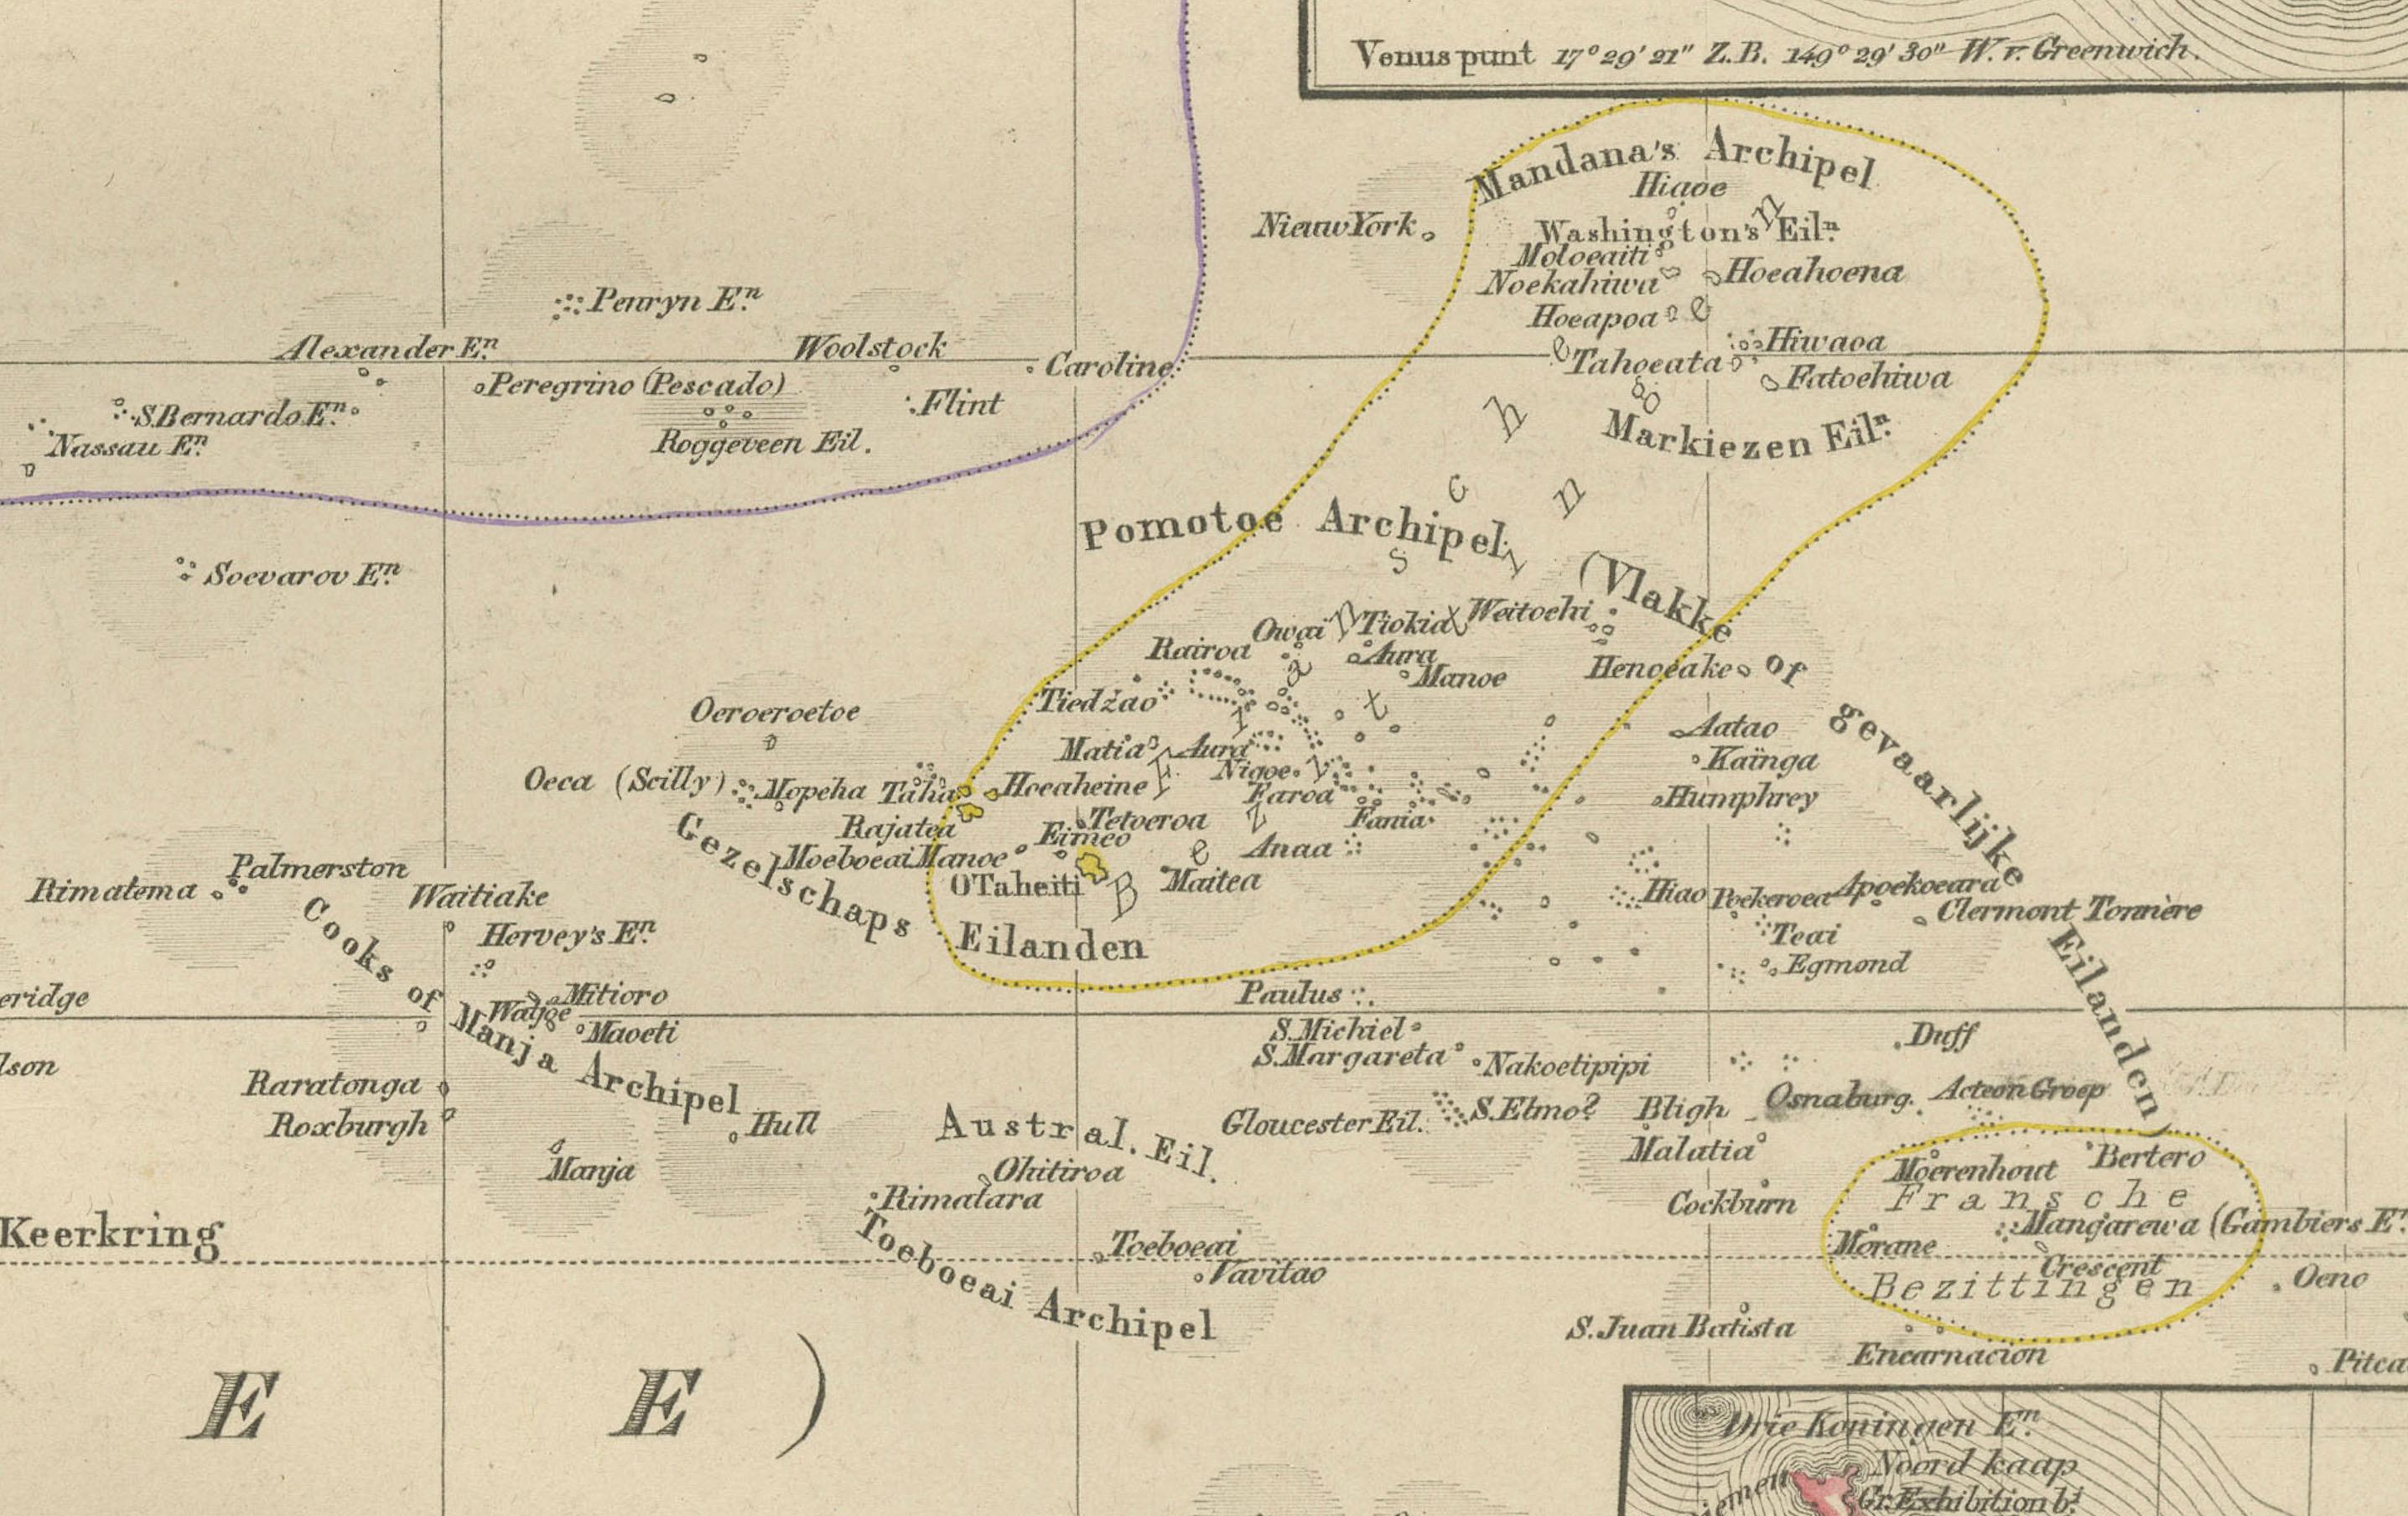 Venus punt 17° 29' 21" Z.B. 149° 29' 30" W. v. Greenwich.
Mandana's Archipel
Hiaoe
Nieuw York
Washington's Eiln.
Motoeaiti
Noekahiwa
Hoeahoena
Hoeapoa
Hiwaoa
Tahoeata
Fatoehiwa
Markiezen Eiln.
Penryn En.
Alexander En.
Woolstock
Caroline
Peregrino (Pescado)
Flint
S.Bernardo En.
Nassau En.
Roggeveen Eil.
Soevarov En.
Pomotoe Archipel
(Vlakke of gevaarlijke Eilanden)
Bezittingen
Franschen
Owai
Tiokia
Weitoehi
Rairoa
Aura
Manoe
Henoeake
Tiedžao
Oeroeroetoe
Aatao
Matia
Aura
Kaïnga
Nigoe
Oeca (Scilly)
Mopeha
Taha
Hoeaheine
Faroa
Humphrey
Tetoeroa
Fania
Rajatea
Eimeo
Moeboeai Manoe
Anaa
OTaheiti
Maitea
Gezelschaps Eilanden
Palmerston
Rimatema
Waitiake
Hiao
Poekeroea
Apoekoeara
Clermont Tonnère
Hervey's En.
Teai
Egmond
Cooks of Manja Archipel
Mitioro
Watjoe
Maoeti
eridge
Paulus
S.Michiel
S.Margareta
Nakoetipipi
Duff
lson
Raratonga
Roxburgh
Hull
Manja
Austral. Eil.
Gloucester Eil.
S.Elmo?
Bligh
Osnaburg.
Acteon Groep
Malatia
Moerenhout
Bertero
Ohitiroa
Rimatara
Cockburn
Fransche
Mangarewa (Gambiers En.
Keerkring
Toeboeai
Morane
Crescent
Vavitao
Bezittingen
Oeno
Toeboeai Archipel
S.Juan Batista
Encarnacion
Pitca
E E )
Drie Koningen En.
Noord kaap
Gr. Exhibition bt.
iemen